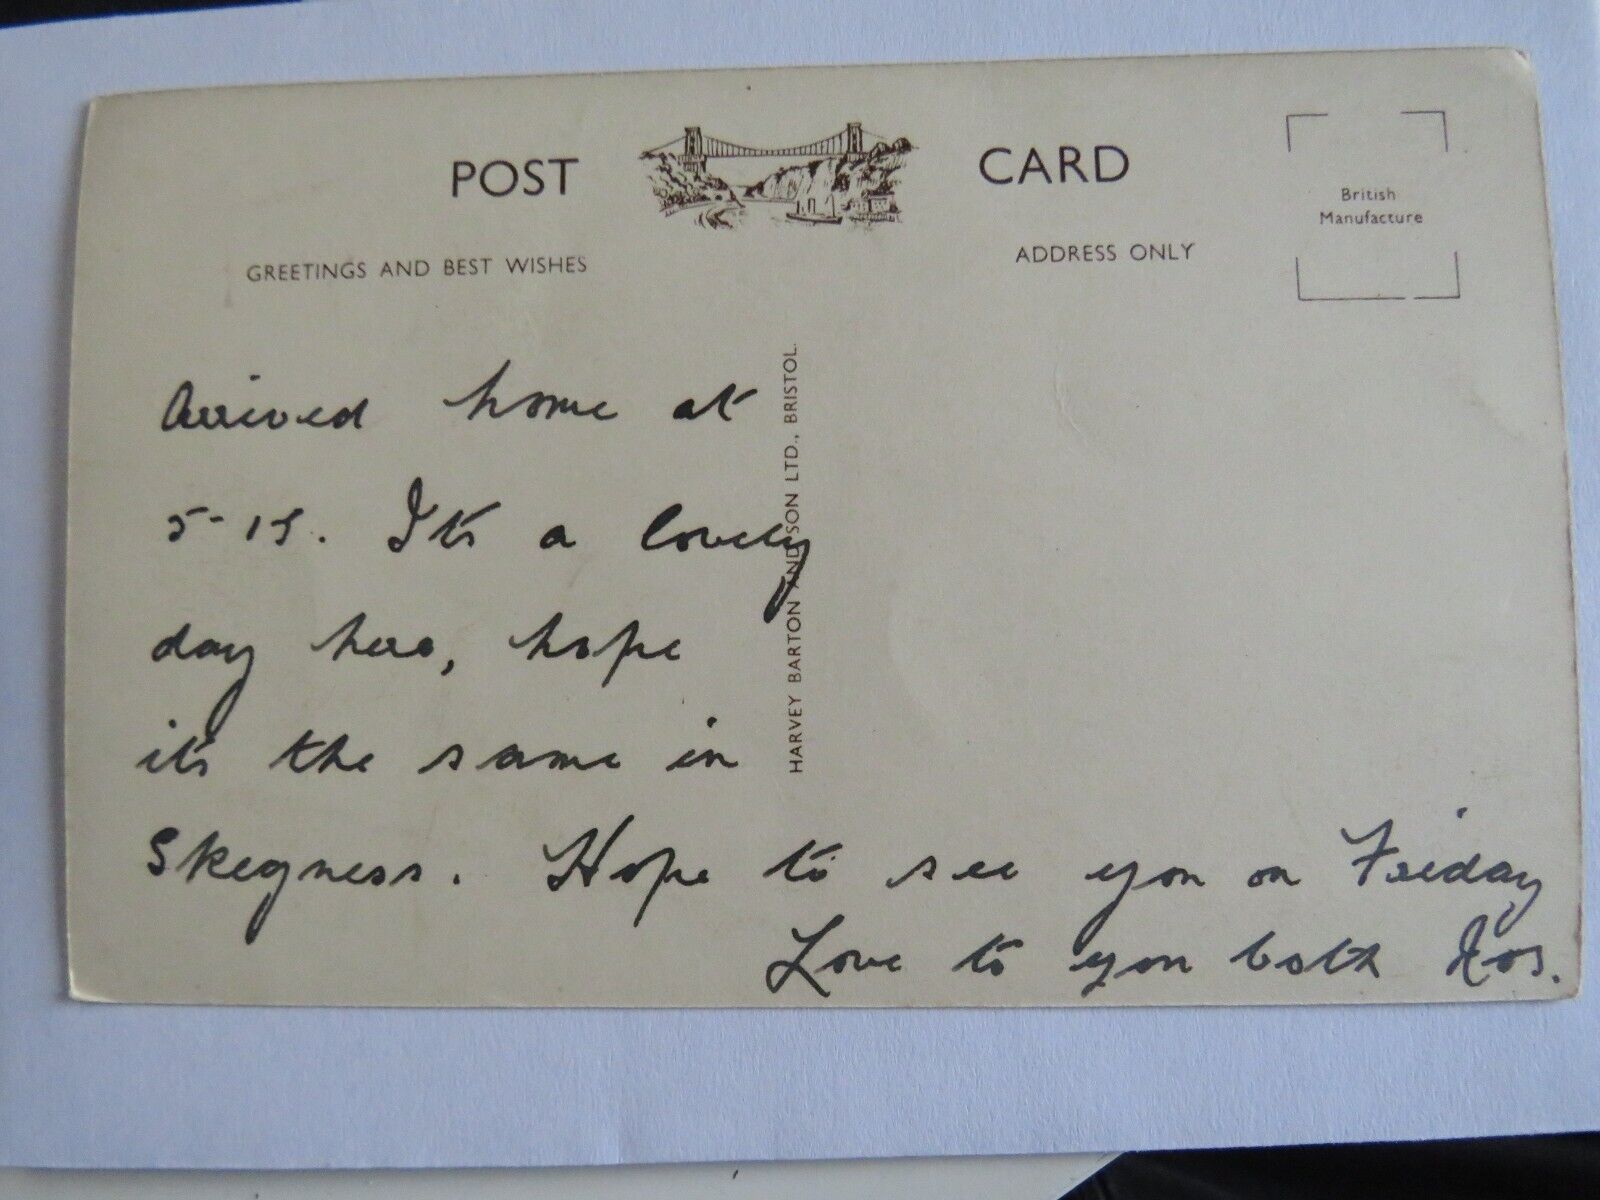 POST CARD
British
Manufacture
GREETINGS AND BEST WISHES
ADDRESS ONLY
HARVEY BARTON AND SON LTD., BRISTOL.
Arrived home at
5-15. It's a lovely
day here, hope
it's the same in
Skegness. Hope to see you on Friday
Love to you both